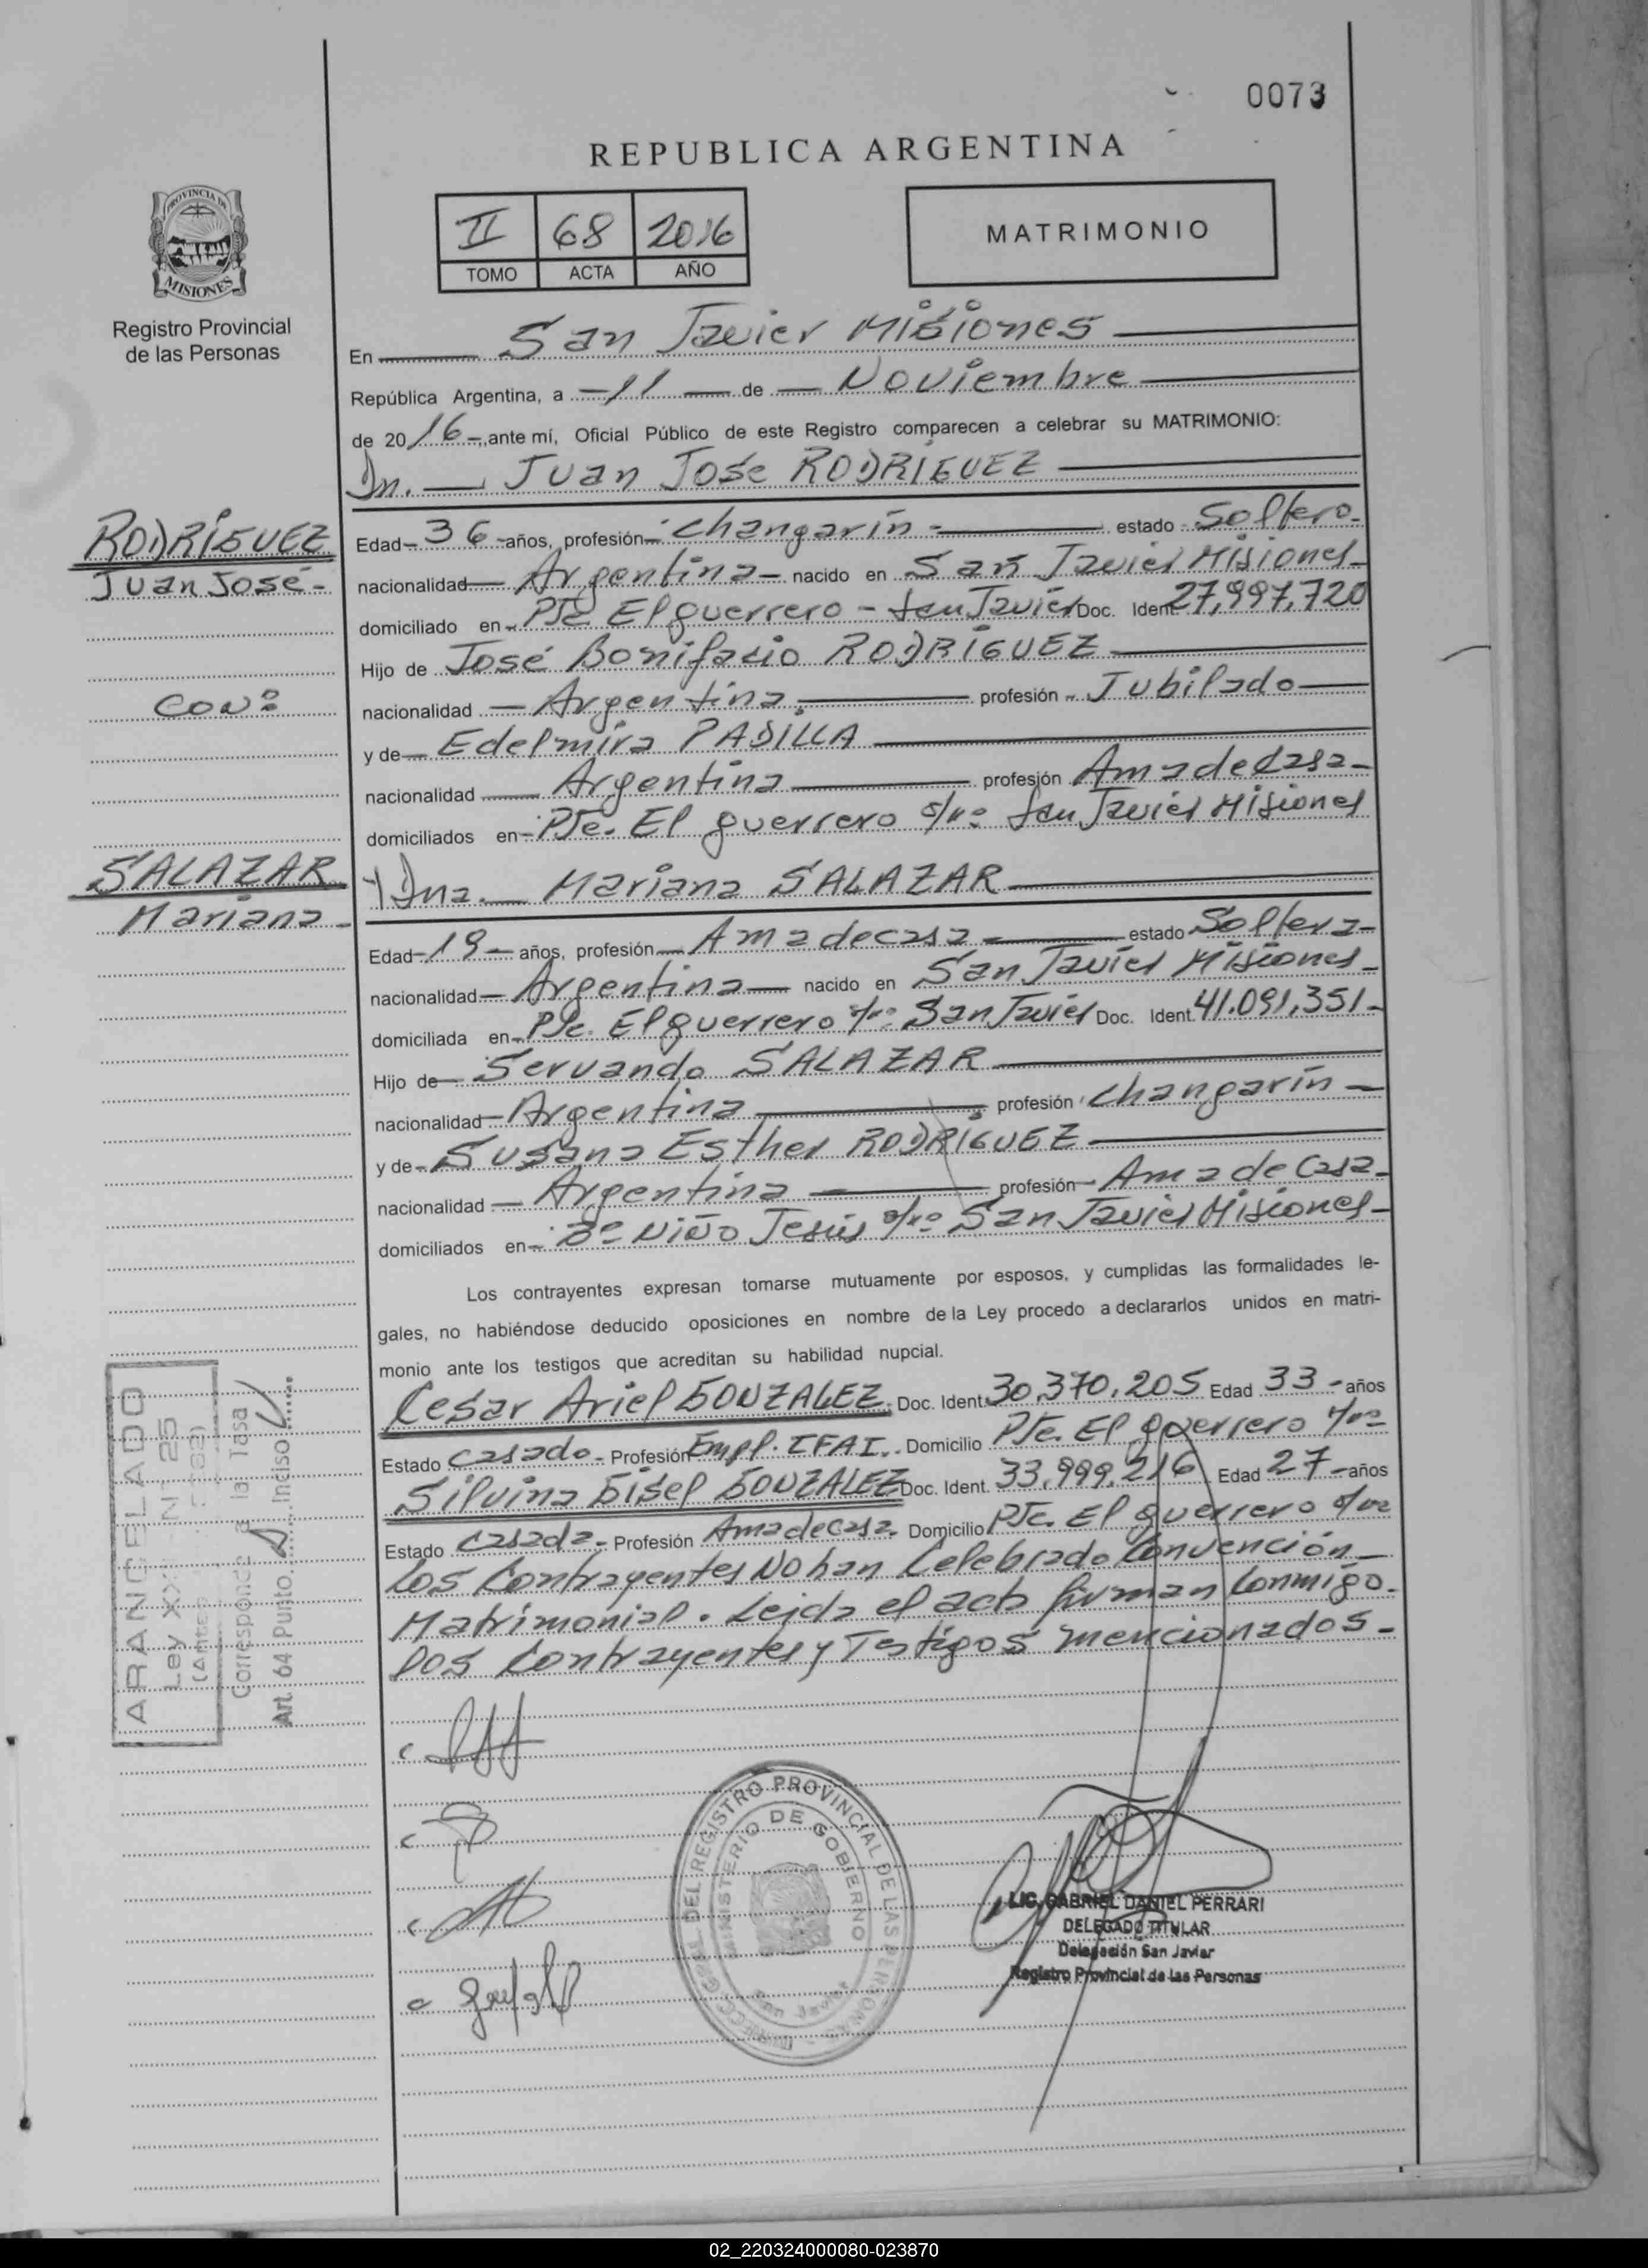 0073
REPUBLICA ARGENTINA
PROVINCIA DE MISIONES
Registro Provincial
de las Personas
II 68 2016
TOMO ACTA AÑO
MATRIMONIO
En San Javier Misiones
República Argentina, a 11 de Noviembre
de 2016, ante mí, Oficial Público de este Registro comparecen a celebrar su MATRIMONIO:
Dn. Juan Jose RODRIGUEZ
RODRÍGUEZ
Juan José
CON:
SALAZAR
Mariana
Edad 36 años, profesión Changarín estado Soltero
nacionalidad Argentina nacido en San Javier Misiones
domiciliado en Pje. El guerrero - San Javier Doc. Ident. 27,997,720
Hijo de José Bonifacio RODRÍGUEZ
nacionalidad Argentina profesión Jubilado
y de Edelmira PADILLA
nacionalidad Argentina profesión Ama de Casa
domiciliados en Pje. El guerrero s/nº San Javier Misiones
Y Dna. Mariana SALAZAR
Edad 19 años, profesión Ama de casa estado Soltera
nacionalidad Argentina nacido en San Javier Misiones
domiciliada en Pje. El guerrero s/nº San Javier Doc. Ident. 41.091,351
Hijo de Servando SALAZAR
nacionalidad Argentina profesión Changarín
y de Susana Esther RODRIGUEZ
nacionalidad Argentina profesión Ama de Casa
domiciliados en Bº Niño Jesús s/nº San Javier Misiones
Los contrayentes expresan tomarse mutuamente por esposos, y cumplidas las formalidades le-
gales, no habiéndose deducido oposiciones en nombre de la Ley procedo a declararlos unidos en matri-
monio ante los testigos que acreditan su habilidad nupcial.
Cesar Ariel GONZALEZ Doc. Ident. 30,370,205 Edad 33 años
Estado Casado Profesión Empl. IFAI. Domicilio Pje. El guerrero s/nº
Silvina Gisel GONZALEZ Doc. Ident. 33,999,216 Edad 27 años
Estado Casada Profesión Ama de Casa Domicilio Pje. El guerrero s/nº
Los Contrayentes No han Celebrado Convención
Matrimonial. Leida el acta firman Conmigo
los Contrayentes y Testigos mencionados
ARANCELADO
Ley XX Nº 25
Corresponde a la Tasa
Art. 64 Punto Inciso
REGISTRO PROVINCIAL DE LAS PERSONAS
MINISTERIO DE GOBIERNO
San Javier
LIC. GABRIEL DANIEL PERRARI
DELEGADO TITULAR
Delegación San Javier
Registro Provincial de las Personas
02_220324000080-023870